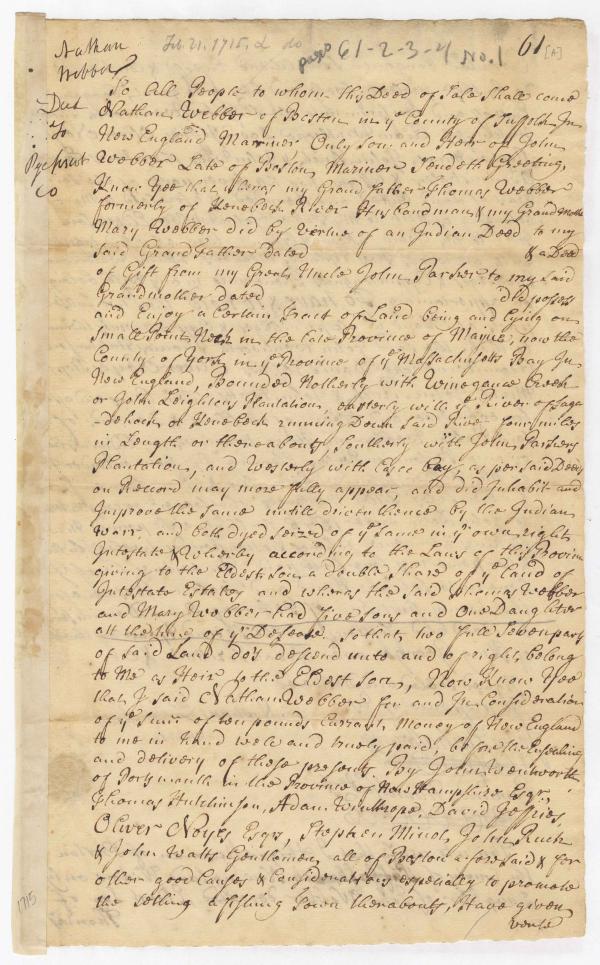 Nathan
Webber
Feb. 21. 1715. & do
pages 61-2-3-4 No. 1
61 [A]
Deed
to
Pejepscot
Co
To All People to whom this Deed of Sale Shall come
Nathan Webber of Boston in ye County of Suffolk In
New England Marriner Only Son and Heir of John
Webber Late of Boston Mariner Sendeth Greeting,
Know Yee that whereas my Grand father Thomas Webber
formerly of Kenebeck River Husbandman & my Grand Mother
Mary Webber did by vertue of an Indian Deed to my
said Grandfather dated & a Deed
of Gift from my Great Uncle John Parker to my said
Grandmother dated did posess
and Enjoy a Certain Tract of Land being and lying on
Small Point Neck in the late Province of Maine, now the
County of York in ye Province of ye Massachusetts Bay In
New England, Bounded Notherly with Winegance Creek
or John Leightons Plantation, easterly with ye River of Saga
-dehock or Kenebeck running Down said River four miles
in Length or thereabouts, Southerly with John Parkers
Plantation, and Westerly with Casco bay, as per said Deeds
on Record may more fully appear, and did Inhabit and
Improve the same untill driven thence by the Indian
Warr, and both dyed seized of ye same in yr own right
Intestate & Wherby according to the Laws of this Province
giving to the Eldest Son a double Share of ye land of
Intestate Estates and wheras the said Thomas Webber
and Mary Webber had five sons and One Daughter
att the time of yr Decease So that two full Seven parts
of said Land do's descend unto and of right belong
to Me as Heir to the Eldest Son, Now Know Yee
that I said Nathan Webber for and In Consideration
of ye Sum of ten pounds Currant Money of New England
to me in hand well and truely paid, before the Ensealing
and delivery of these presents By John Wentworth
of Portsmouth in the Province of New Hampshire Esqr,
Thomas Hutchinson, Adam Winthrope, David Jeffries,
Oliver Noyes Esqrs, Stephen Minot, John Ruck
& John Watts Gentlemen, all of Boston aforesaid & for
other good Causes & Considerations especially to promote
the setling a fishing Town therabouts, Have given
1715